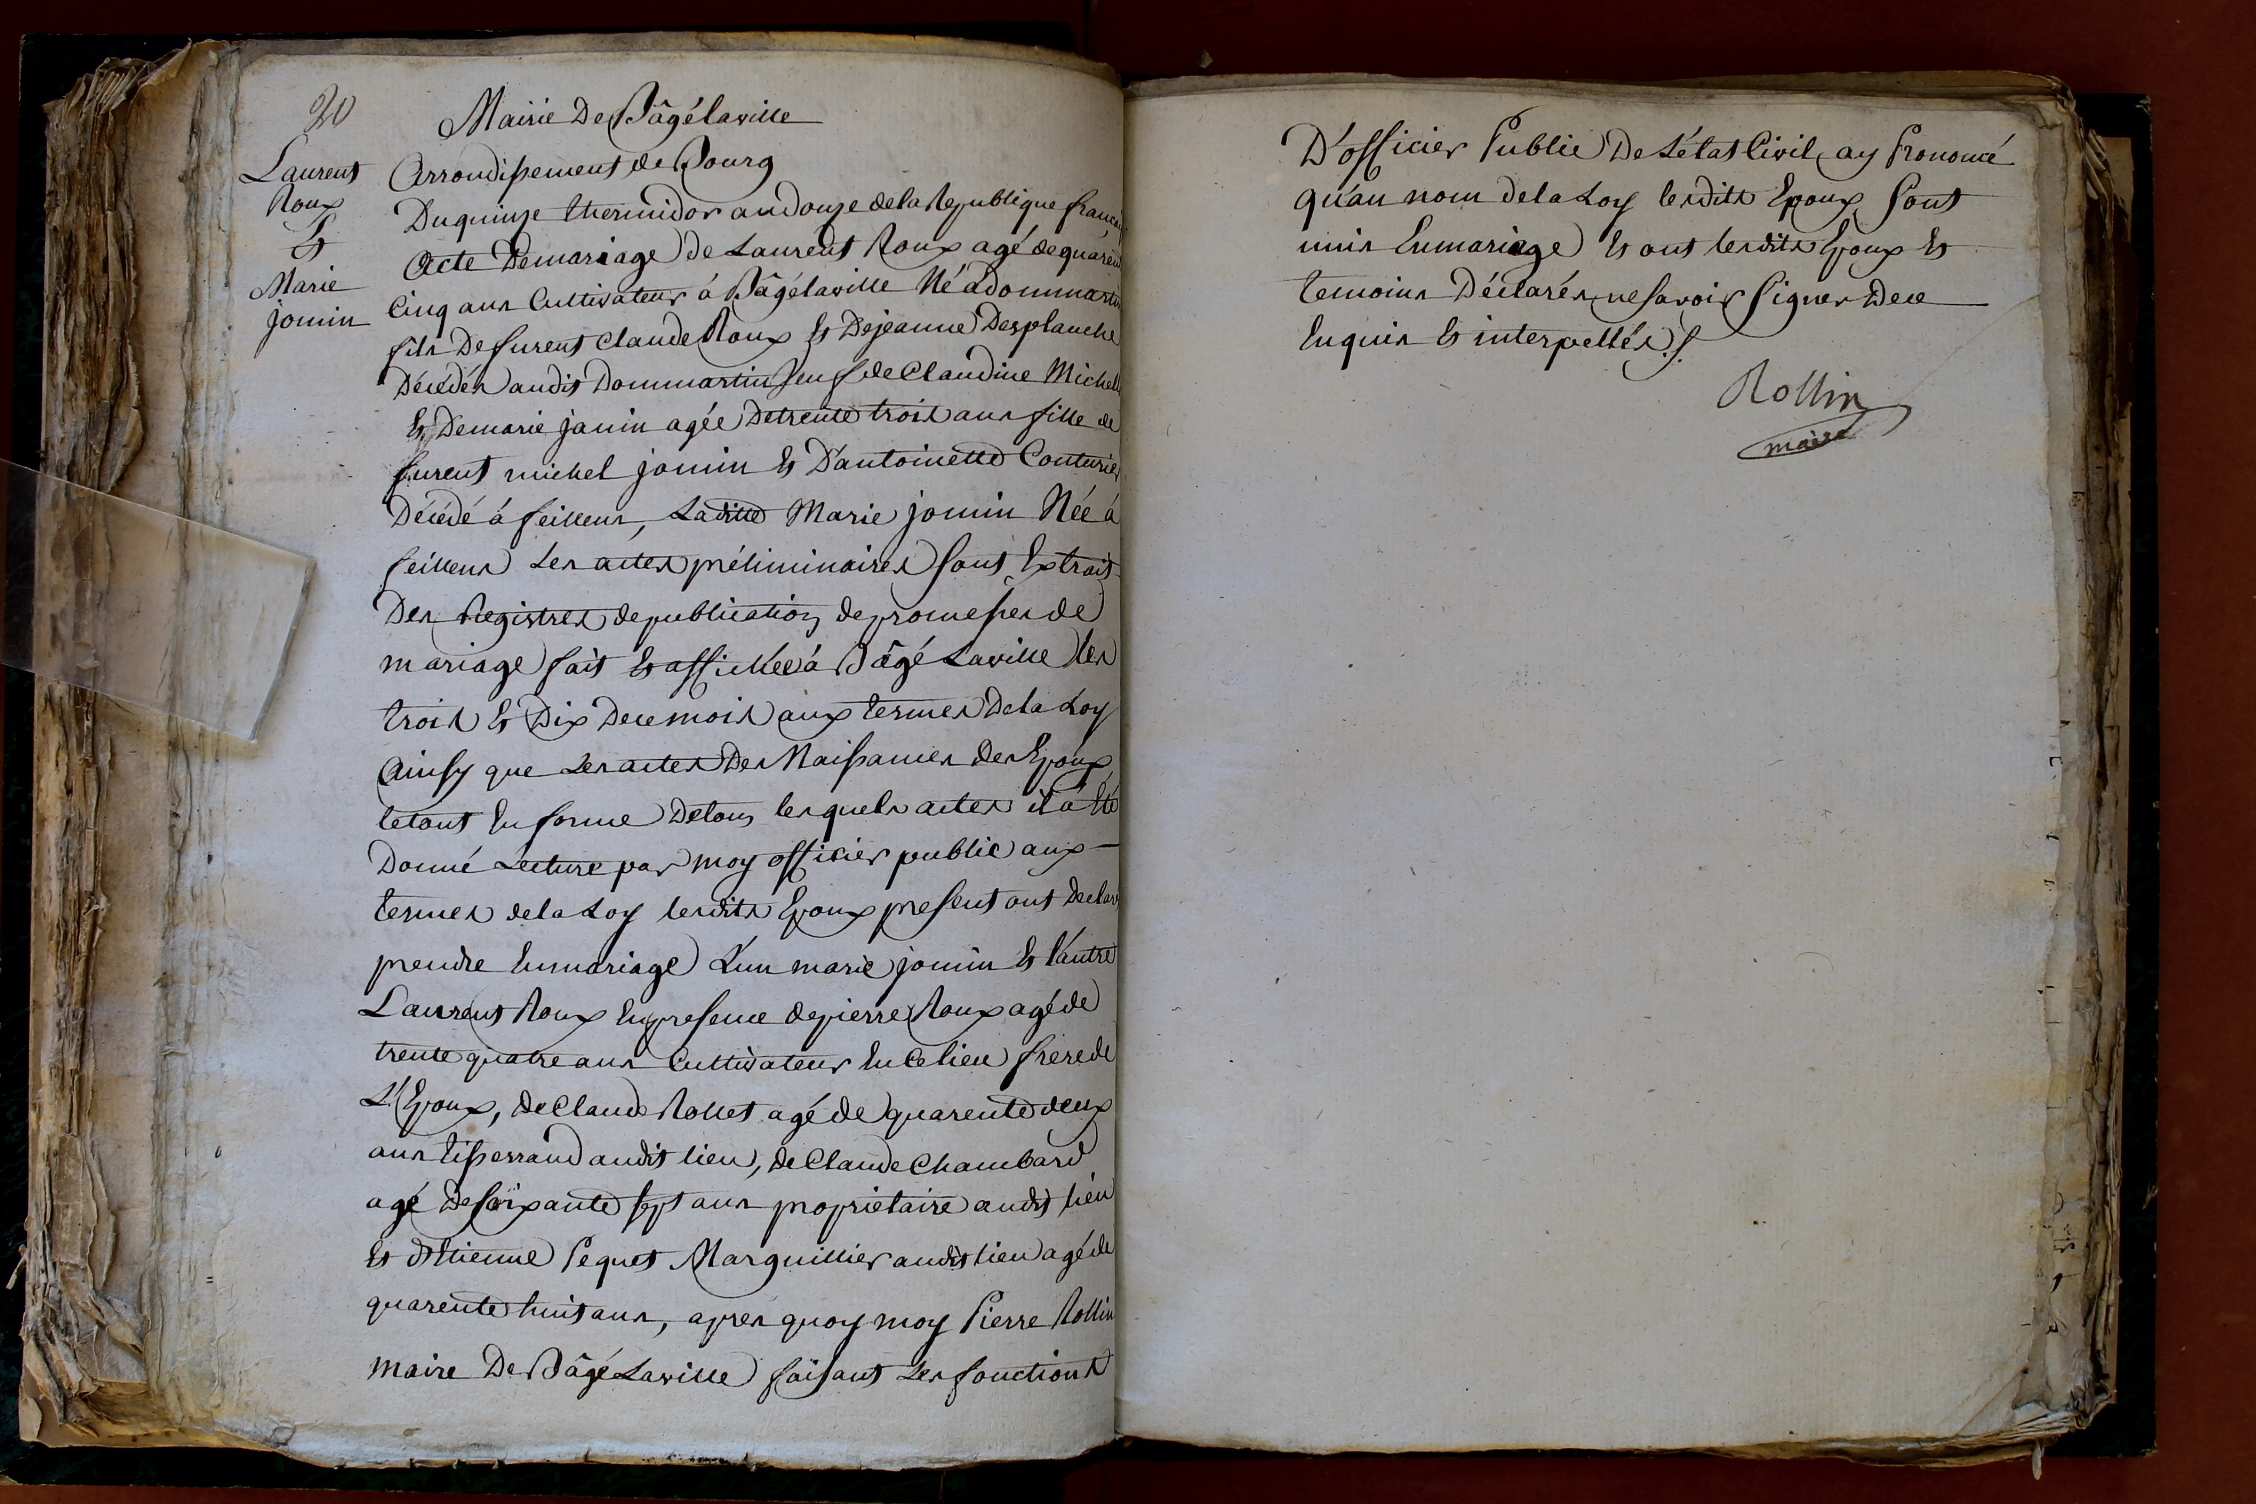 20
Mairie De Bâgélaville
Laurent
Roux
Et
Marie
jomin
Arrondissement de Bourg
Du quinze thermidor an douze de la Republique françai
Acte De mariage de Laurent Roux agé de quarente
Cinq ans Cultivateur á Bâgélaville Né á dommartin
fils De furent Claude Roux Et De jeanne Desplanche
Décédés audit Dommartin Veuf de Claudine Michel
Et De marie jomin agée De trente trois ans fille de
furent michel jomin Et D'antoinette Couturier
Décédé á feillens, Laditte Marie jomin Née á
feillens Les actes préliminaires sont Extrait
Des Registres de publication de promesses de
mariage fait Et affichée á Bâgé Laville les
trois Et Dix De ce mois aux termes De la Loy
Ainsy que Les actes Des Naissances des Epoux
le tout En forme De tous lesquels actes il á Eté
Donné Lecture par moy officier public aux
termes de la Loy lesdits Epoux present ont Declaré
prendre En mariage L'un marie jomin Et l'autre
Laurent Roux En presence de pierre Roux agé de
trente quatre ans Cultivateur En Ce lieu frere de
L'Epoux, de Claude Rollet agé de quarente deux
ans tisserrand audit lieu, de Claude Chambard
agé De soixante sept ans propriétaire audit lieu
Et d'Etienne Pequet Marguillier audit lieu agé de
quarente huit ans, apres quoy moy Pierre Rollin
maire De Bâgé Laville faisant Les fonctions
D'officier Public De L'état Civil, ay Prononcé
qu'au nom de la Loy lesdits Epoux sont
unis En mariage Et ont lesdits Epoux Et
temoins Déclarés ne savoir signer De ce
Enquis Et interpellés ./.
Rollin
maire